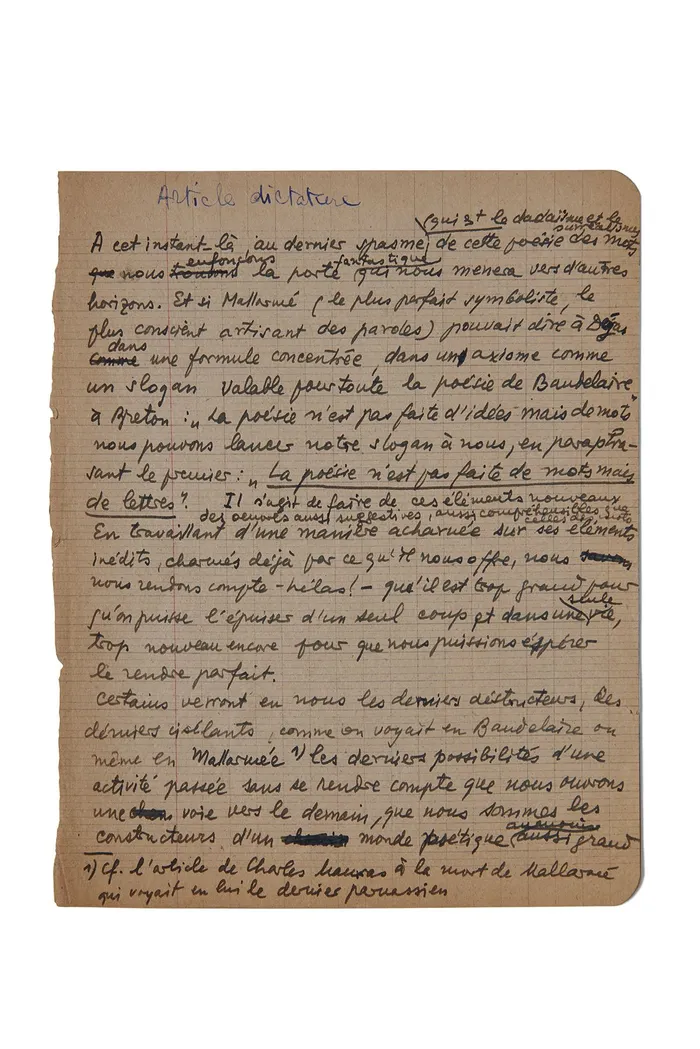 Article dictature
qui est le dadaïsme et le
surréalisme
A cet instant-là, au dernier spasme, de cette poésie des mots
enfonçons fantastique
que nous la porte qui nous menera vers d'autres
horizons. Et si Mallarmé (le plus parfait symboliste, le
plus conscient artisant des paroles) pouvait dire à Dégas
dans
comme une formule concentrée, dans un axiome comme
un slogan valable pour toute la poésie de Baudelaire
à Breton : „ La poésie n'est pas faite d'idées mais de mots"
nous pouvons lancer notre slogan à nous, en paraphra-
sant le premier : „ La poésie n'est pas faite de mots mais
de lettres". Il s'agit de faire de ces éléments nouveaux
des oeuvres aussi suggestives, aussi compréhensibles que
celles des
En travaillant d'une manière acharnée sur ses éléments
inédits, charmés déjà par ce qu'il nous offre, nous savons
nous rendons compte - hélas! - qu'il est trop grand pour
seule
qu'on puisse l'épuiser d'un seul coup et dans une vie,
trop nouveau encore pour que nous puissions éspérer
le rendre parfait.
Certains verront en nous les derniers déstructeurs, les
dérniers cisélants, comme on voyait en Baudelaire ou
même en Mallarmée 1) les derniers possibilités d'une
activité passée sans se rendre compte que nous ouvrons
une voie vers le demain, que nous sommes les
constructeurs d'un monde poétique aussi grand
1) Cf. l'article de Charles Mauras à la mort de Mallarmé
qui voyait en lui le dernier parnassien